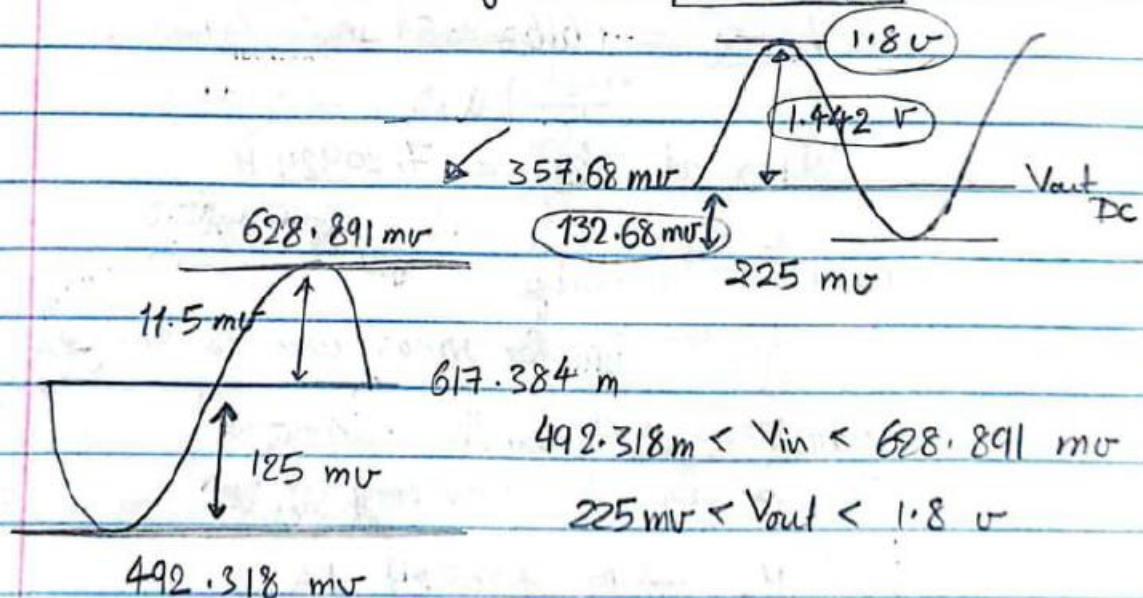 1.8 v
1.442 v
357.68 mv
Vout DC
132.68 mv
225 mv
628.891 mv
11.5 mv
617.384 m
125 mv
492.318 mv
492.318m < Vin < 628.891 mv
225 mv < Vout < 1.8 v